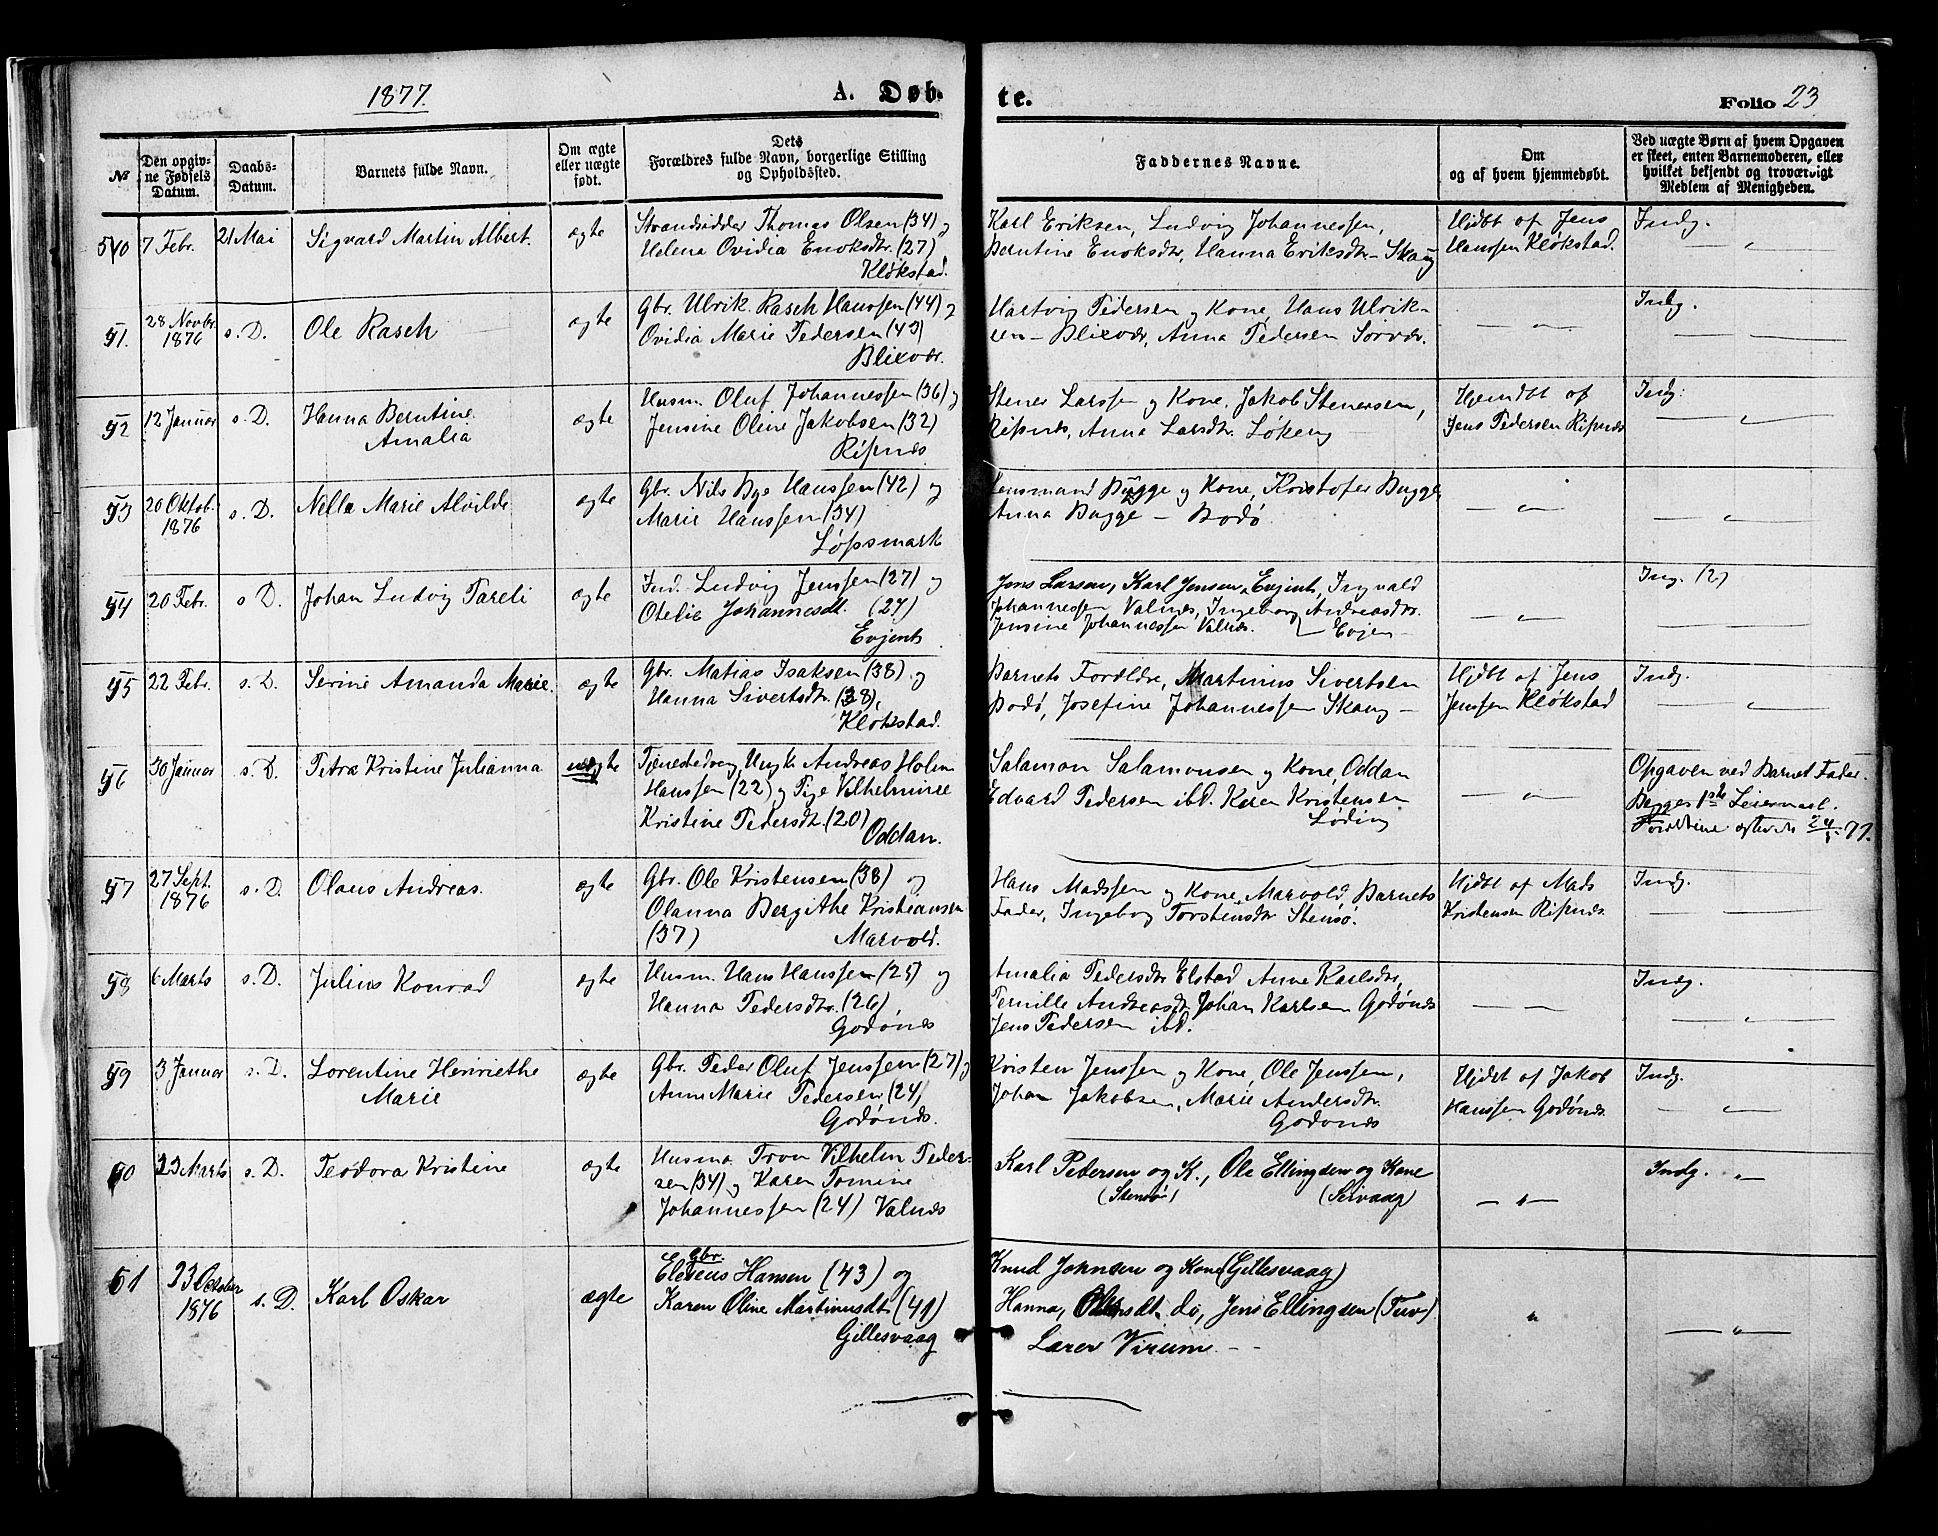 1877. A. Døb- te. Folio 23
№ | Den opgivne Fødsels Datum. | Daabs-Datum. | Barnets fulde Navn. | Om ægte eller uægte født. | Dets Forældres fulde Navn, borgerlige Stilling og Opholdssted. | Faddernes Navne. | Om og af hvem hjemmedøbt. | Ved uægte Børn af hvem Opgaven er skeet, enten Barnemoderen, eller hvilket bekjendt og troværdigt Medlem af Menigheden.
50 7 Febr. 21 Mai Sigvard Martin Albert. ægte Strandsidder Thomas Olsen (34) og Karl Eriksen, Ludvig Johannessen, Hjdbt af Jens Indg.
Helena Ovidia Enoksdtr. (27) Berntine Enoksdtr, Hanna Eriksdtr – Skaug Hanssen Kløkstad. "
Kløkstad.
51. 28 Novbr. 1876 s. D. Ole Rasch ægte Gbr. Ulrik Rasch Hanssen (44) og Hartvig Pedersen og Kone, Hans Ulrik- — " — Indg.
Ovidia Marie Pedersen (43) sen – Blixvær, Anna Pedersen Sørvær. — " —
Blixvær.
52 12 Januar s. D. Hanna Berntine ægte Husm. Oluf Johannessen (36) og Stener Larssen og Kone, Jakob Stenersen, Hjemdbt af Indg.
Amalia Jensine Oline Jakobsen (32) Ripnæs, Anna Larsdtr. Løkeng Jens Pedersen Ripnæs "
Ripnæs
53 20 Oktob. 1876 s. D. Nella Marie Alvilde ægte Gbr. Nils Bye Hanssen (42) og Lensmand Bugge og Kone, Kristofer Bugge — " —
Marie Hanssen (34) Anna Bugge – Bodø. — " —
Løpsmark
54 20 Febr. s D. Johan Ludvig Pareli ægte Ind. Ludvig Jenssen (27) og Jens Larsen, Karl Jensen, Evjent, Ingvald Ing. (2)
Otelie Johannesdt. (24) Johannessen Valnæs, Ingeborg Andreasdtr. — " —
Evjent Jensine Johannessen Valnæs. Evjen –
55 22 Febr. s. D. Serine Amanda Marie. ægte Gbr. Matias Isaksen (38) og Barnets Forældre, Martinus Sivertsen Hjdbt af Jens Indg.
Hanna Sivertsdtr. (38), Bodø, Josefine Johannessen Skaug – Jenssen Kløkstad — " —
Kløkstad.
56 30 Januar s. D. Petra Kristine Julianna uægte Tjenestedreng Ungk. Andreas Holm Salamon Salamonsen og Kone, Oddan — " — Opgaven ved Barnet Fader.
Hanssen (22) og Pige Vilhelmine Edvard Pedersen ibd. Karen Kristensen Begges 1ste Leiermaal.
Kristine Pedersdt. (20) Løding Forældrene
Oddan.
57 27 Sept. 1876 s. D. Olaus Andreas. ægte Gbr. Ole Kristensen (38) og Hans Madssen og Kone, Marvold, Barnets Hjdbt af Mads Indg.
Olanna Bergithe Kristiansen Fader, Ingeborg Torstensdtr Stensø. Kristensen Ripnæs. — " —
(37) Marvold.
58 6 Marts s. D. Julius Konrad ægte Husm. Hans Hanssen (25) og Amalia Pedersdtr Elstad Anne Karlsdtr, — " — Indg.
Hanna Pedersdtr. (26) Pernille Andreasdt. Johan Karlsen Godønæs "
Godønæs Jens Pedersen ibd.
59 3 Januar s. D. Lorentine Henriethe ægte Gbr. Peder Oluf Jenssen (27) og Kristen Jenssen og Kone, Ole Jenssen, Hjdbt af Jakob Indg.
Marie Anne Marie Pedersen (24) Johan Jakobsen, Marie Andersdtr. Hanssen Godønæs. — " —
Godønæs. Godønæs
60 23 Marts s. D. Teodora Kristine ægte Husma Tron Vilhelm Peder- Karl Pedersen og K., Ole Ellingsen og Kone Indg. "
sen (34) og Karen Tomine (Stensø) (Seivaag) — " —
Johannessen (24) Valnæs
61 23 October 1876 s. D. Karl Oskar ægte Gbr. Hansen (43) og Knud Johnsen og Kone (Gillesvaag)
Karen Oline Martinusdt. (41) Hanna do, Jens Ellingsen (Tuv) " — " —
Gillesvaag Lærer Virum – –